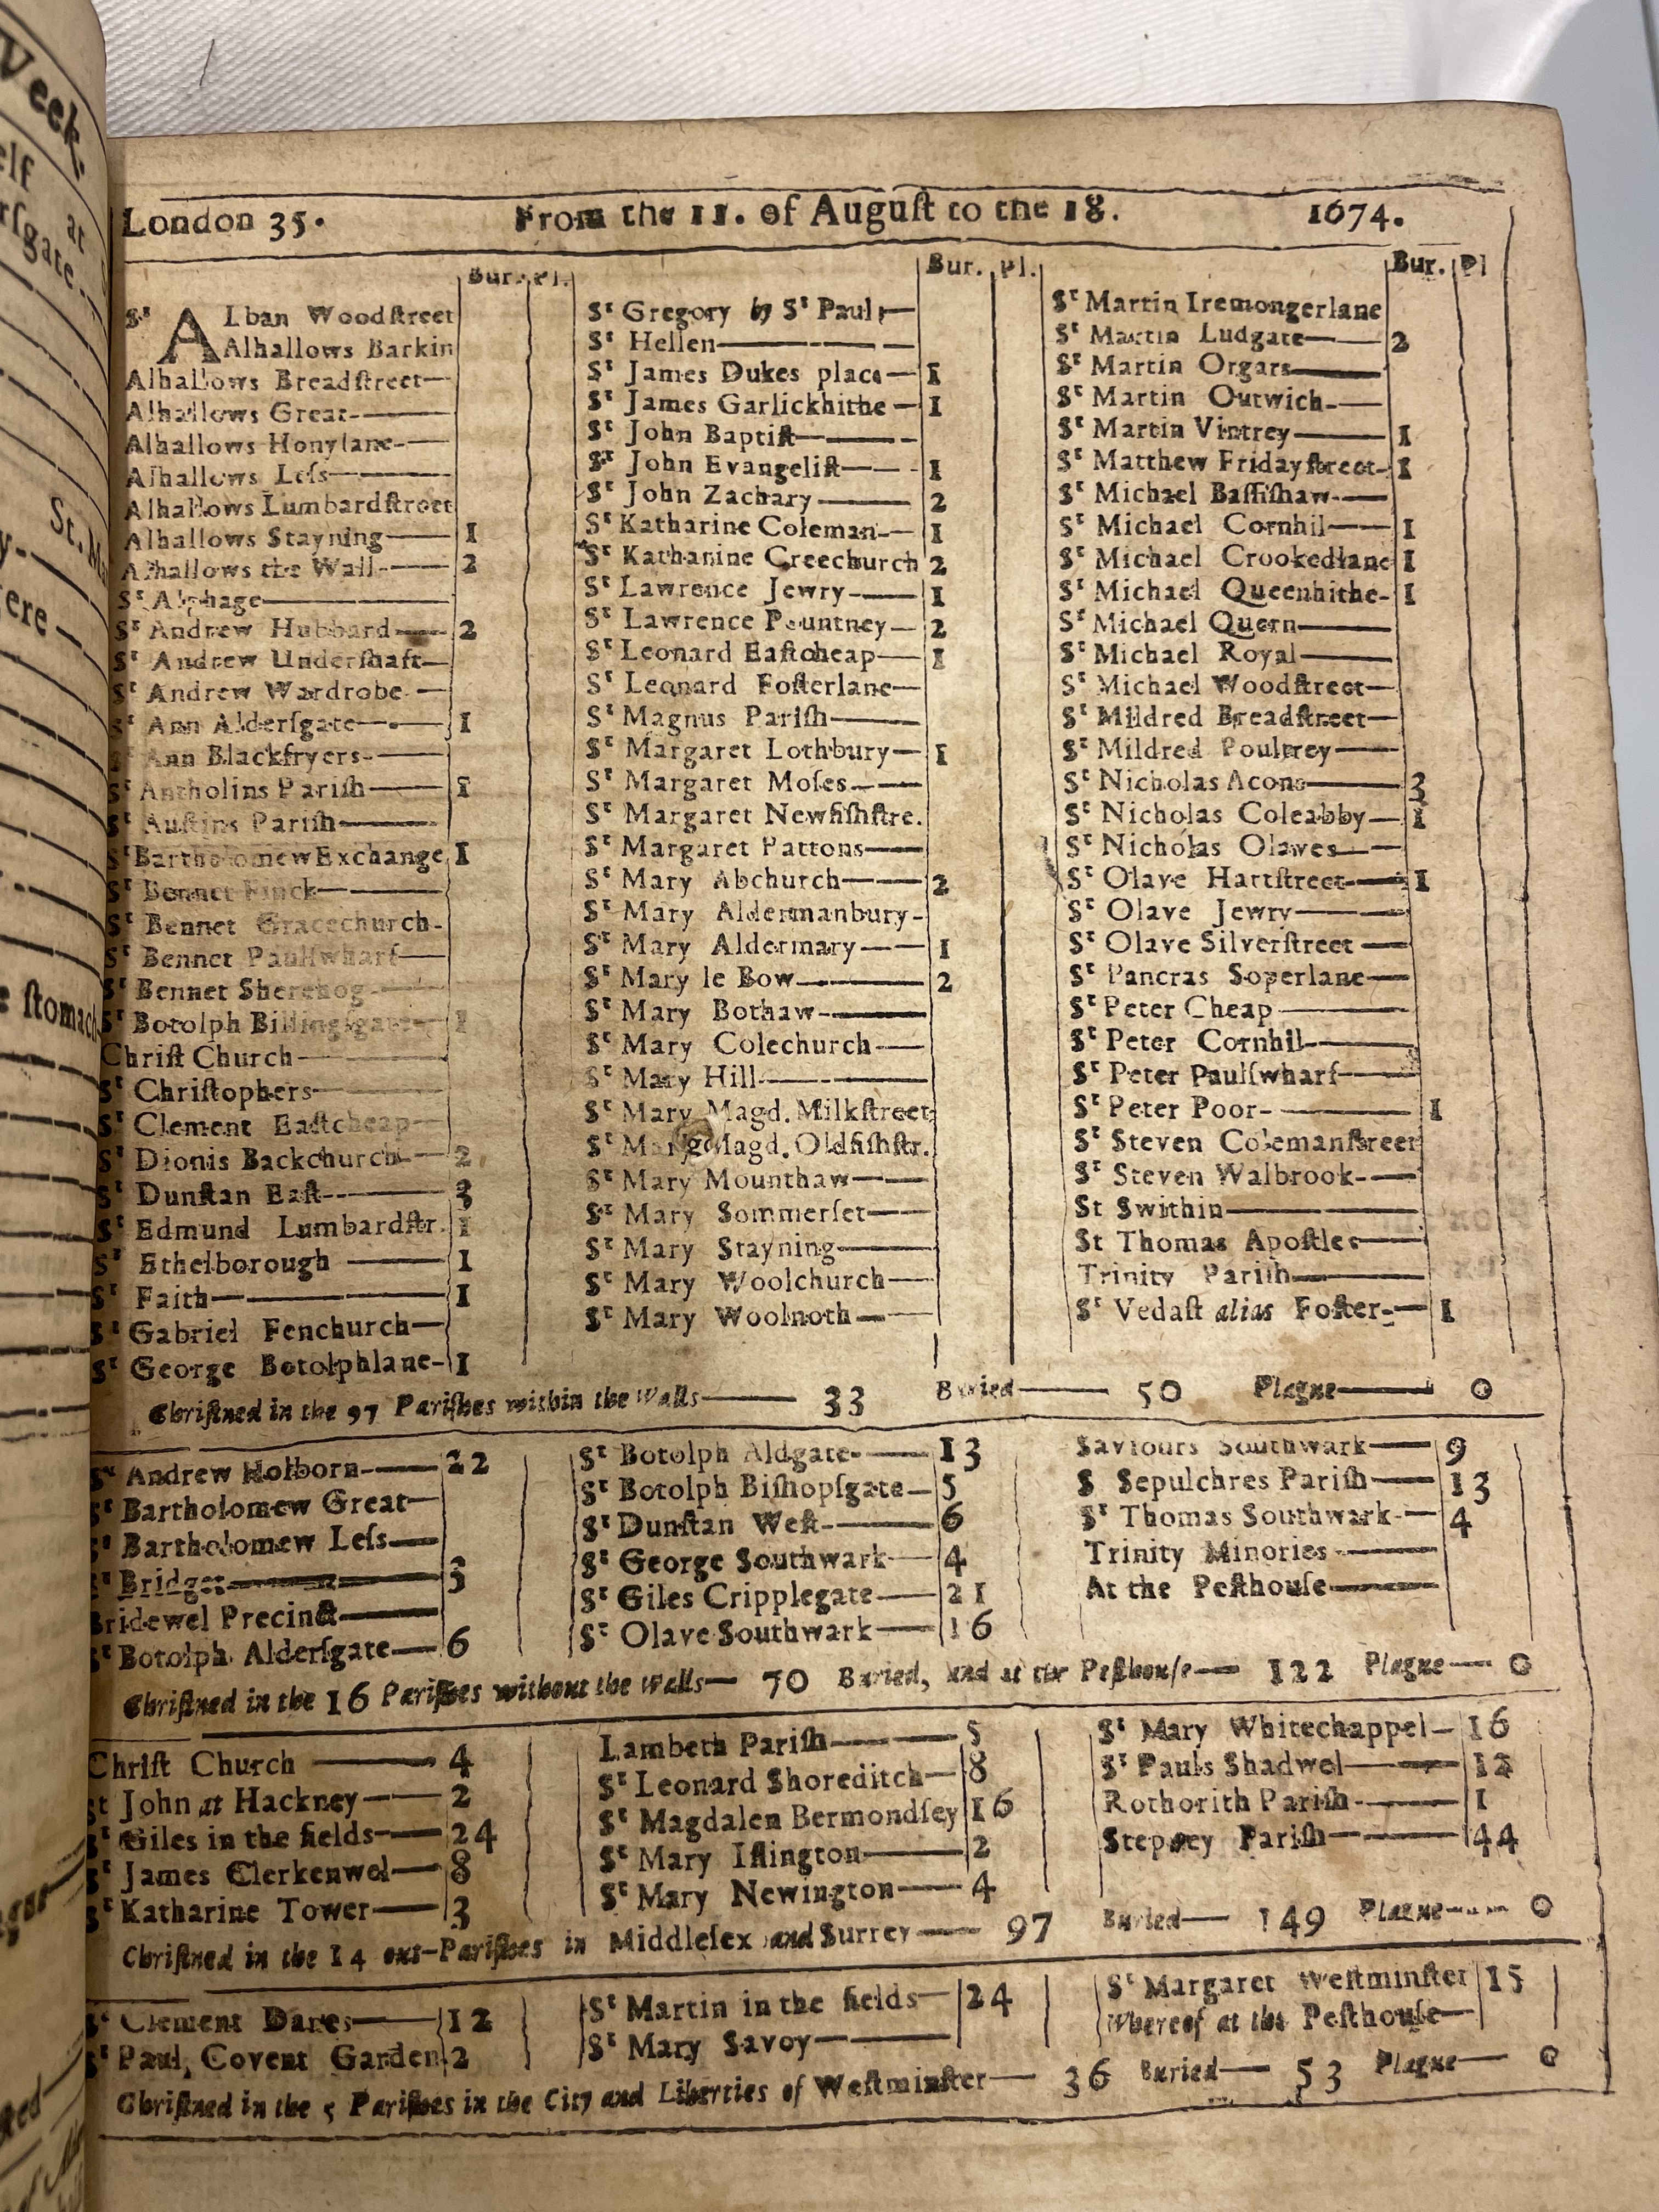 Week.
elf at
rſgate.
St. M
ere
e ſtomach
London 35. From the 11. of Auguſt to the 18. 1674.
Bur. Pl.
St ALban Woodſtreet
Alhallows Barkin
Alhallows Breadſtreet—
Alhallows Great-
Alhallows Honylane-
Alhallows Leſs—
Alhallows Lumbardſtreet
Alhallows Stayning— 1
Alhallows the Wall— 2
St Alphage—
St Andrew Hubbard— 2
St Andrew Underſhaft—
St Andrew Wardrobe—
St Ann Alderſgate— 1
St Ann Blackfryers-
St Antholins Pariſh— 1
St Auſtins Pariſh—
St Bartholomew Exchange 1
St Bennet Finck—
St Bennet Gracechurch-
St Bennet Paulſwharf—
St Bennet Sherehog-
St Botolph Billingſgate— 1
Chriſt Church—
St Chriſtophers—
St Clement Eaſtcheap—
St Dionis Backchurch— 2
St Dunſtan Eaſt— 3
St Edmund Lumbardſtr. 1
St Ethelborough — 1
St Faith— 1
St Gabriel Fenchurch—
St George Botolphlane- 1
Bur. Pl.
St Gregory by St Paul—
St Hellen—
St James Dukes place— 1
St James Garlickhithe— 1
St John Baptiſt—
St John Evangeliſt— 1
St John Zachary— 2
St Katharine Coleman— 1
St Katharine Creechurch 2
St Lawrence Jewry— 1
St Lawrence Pountney— 2
St Leonard Eaſtcheap— 1
St Leonard Foſterlane—
St Magnus Pariſh—
St Margaret Lothbury— 1
St Margaret Moſes—
St Margaret Newfiſhſtre.
St Margaret Pattons—
St Mary Abchurch— 2
St Mary Aldermanbury-
St Mary Aldermary— 1
St Mary le Bow— 2
St Mary Bothaw-
St Mary Colechurch—
St Mary Hill-
St Mary Magd. Milkſtreet
St Mary Magd. Oldfiſhſtr.
St Mary Mounthaw—
St Mary Sommerſet—
St Mary Stayning—
St Mary Woolchurch—
St Mary Woolnoth—
Bur. Pl
St Martin Iremongerlane
St Martin Ludgate— 2
St Martin Orgars—
St Martin Outwich-
St Martin Vintrey— 1
St Matthew Fridayſtreet- 1
St Michael Baſſiſhaw-
St Michael Cornhil— 1
St Michael Crookedlane 1
St Michael Queenhithe- 1
St Michael Quern—
St Michael Royal—
St Michael Woodſtreet—
St Mildred Breadſtreet—
St Mildred Poultrey—
St Nicholas Acons— 3
St Nicholas Coleabby— 1
St Nicholas Olaves—
St Olave Hartſtreet— 1
St Olave Jewry—
St Olave Silverſtreet —
St Pancras Soperlane—
St Peter Cheap
St Peter Cornhil-
St Peter Paulſwharf—
St Peter Poor- 1
St Steven Colemanſtreet
St Steven Walbrook-
St Swithin—
St Thomas Apoſtles—
Trinity Pariſh—
St Vedaſt alias Foſter— 1
Chriſtned in the 97 Pariſhes within the Walls— 33 Buried— 50 Plague— 0
St Andrew Holborn— 22
St Bartholomew Great—
St Bartholomew Leſs—
St Bridget— 3
Bridewel Precinct—
St Botolph Alderſgate— 6
St Botolph Aldgate— 13
St Botolph Biſhopſgate— 5
St Dunſtan Weſt- 6
St George Southwark— 4
St Giles Cripplegate— 21
St Olave Southwark— 16
Saviours Southwark— 9
S Sepulchres Pariſh— 13
St Thomas Southwark— 4
Trinity Minories—
At the Peſthouſe—
Chriſtned in the 16 Pariſhes without the Walls— 70 Buried, and at the Peſthouſe— 122 Plague— 0
Chriſt Church — 4
St John at Hackney— 2
St Giles in the fields— 24
St James Clerkenwel— 8
St Katharine Tower— 3
Lambeth Pariſh— 5
St Leonard Shoreditch— 8
St Magdalen Bermondſey 16
St Mary Iſlington— 2
St Mary Newington— 4
St Mary Whitechappel— 16
St Pauls Shadwel— 12
Rothorith Pariſh- 1
Stepney Pariſh— 44
Chriſtned in the 14 out-Pariſhes in Middleſex and Surrey— 97 Buried— 149 Plague— 0
St Clement Danes— 12
St Paul, Covent Garden 2
St Martin in the fields— 24
St Mary Savoy—
St Margaret Weſtminſter 15
Whereof at the Peſthouſe—
Chriſtned in the 5 Pariſhes in the City and Liberties of Weſtminſter— 36 Buried— 53 Plague— 0